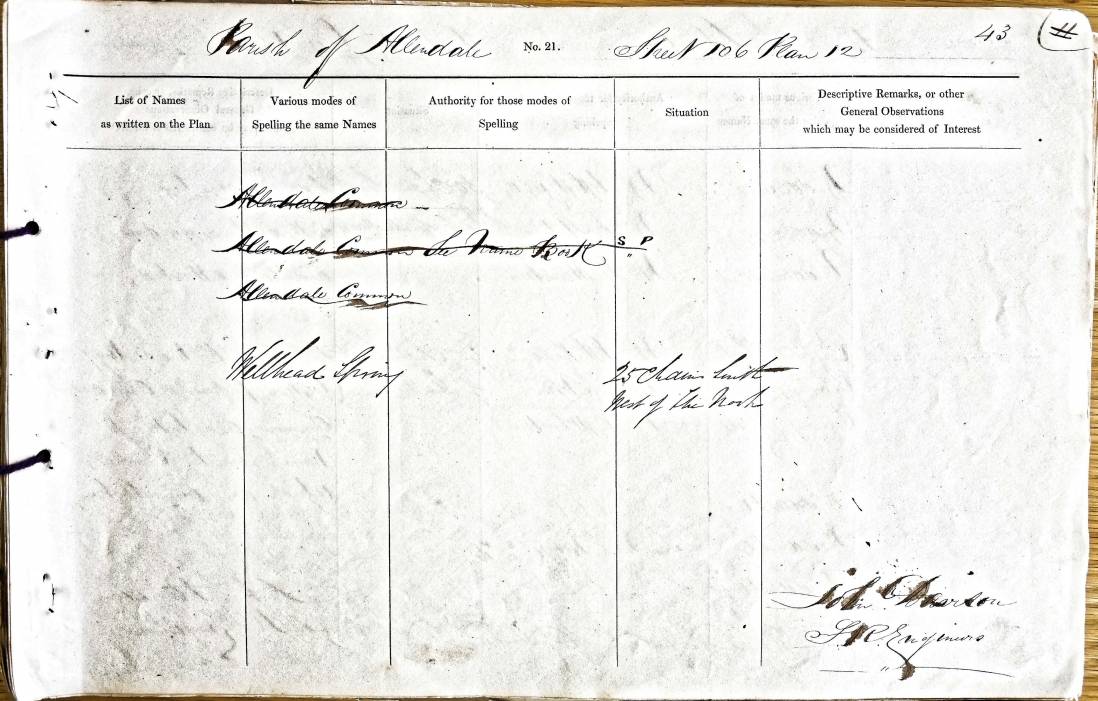 43
Parish of Allendale No. 21. Sheet 106 Plan 12
List of Names
as written on the Plan
Various modes of
Spelling the same Names
Authority for those modes of
Spelling
Situation
Descriptive Remarks, or other
General Observations
which may be considered of Interest
Allendale Common
Allendale Common See Name Book S P
"
Allendale Common
Wellhead Spring 25 Chains South
West of the Nook
John Davison
S. R. Engineers
"